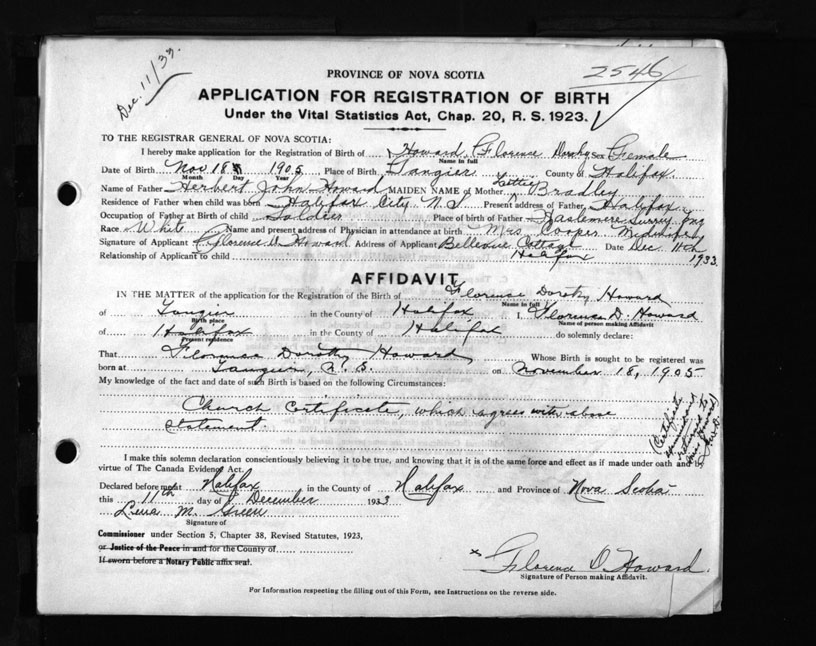 Dec. 11/33.
2546
PROVINCE OF NOVA SCOTIA
APPLICATION FOR REGISTRATION OF BIRTH
Under the Vital Statistics Act, Chap. 20, R. S. 1923.
TO THE REGISTRAR GENERAL OF NOVA SCOTIA:
I hereby make application for the Registration of Birth of Howard, Florence Dorothy Sex Female
Name in full
Date of Birth Nov 18 1905 Place of Birth Tangier County of Halifax.
Month Day Year
Name of Father Herbert John Howard MAIDEN NAME of Mother Lottie Bradley
Residence of Father when child was born Halifax City N.S Present address of Father, Halifax
Occupation of Father at Birth of child Soldier Place of birth of Father Haslemere Surrey Eng
Race White Name and present address of Physician in attendance at birth Mrs Cooper Midwife
Signature of Applicant Florence D. Howard Address of Applicant Bellevue Cottage Date Dec. 11th
Relationship of Applicant to child Halifax 1933.
AFFIDAVIT
IN THE MATTER of the application for the Registration of the Birth of Florence Dorothy Howard
Name in full
of Tangier in the County of Halifax I, Florence D. Howard
Birth place Name of person making Affidavit
of Halifax in the County of Halifax do solemnly declare:
Present residence
That Florence Dorothy Howard Whose Birth is sought to be registered was
born at Tangier, N.S. on November 18, 1905
My knowledge of the fact and date of such Birth is based on the following Circumstances:
Church Certificate, which agrees with above
statement.
(Certificate
returned to
I make this solemn declaration conscientiously believing it to be true, and knowing that it is of the same force and effect as if made under oath and by
virtue of The Canada Evidence Act.
Declared before me at Halifax in the County of Halifax and Province of Nova Scotia
this 11th day of December 1933
Lena M. Green
Signature of
Commissioner under Section 5, Chapter 38, Revised Statutes, 1923,
or Justice of the Peace in and for the County of
If sworn before a Notary Public affix seal.
x Florence D. Howard.
Signature of Person making Affidavit.
For Information respecting the filling out of this Form, see Instructions on the reverse side.